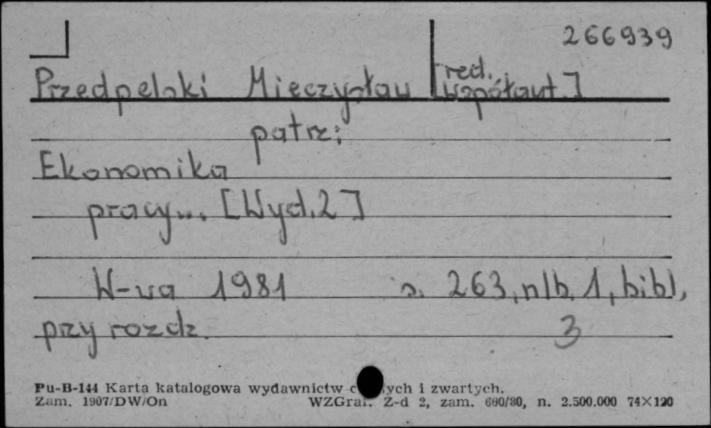 266939
Przedpelski Mieczysław [red.
współaut.]
patrz:
Ekonomika
pracy... [Wyd. 2]
W-wa 1981 s. 263, nlb. 1, bibl,
przy rozdz.
3
Pu-B-144 Karta katalogowa wydawnictw c ych i zwartych.
Zam. 1907/DW/On WZGraf. Z-d 2, zam. 680/80, n. 2.500.000 74×120